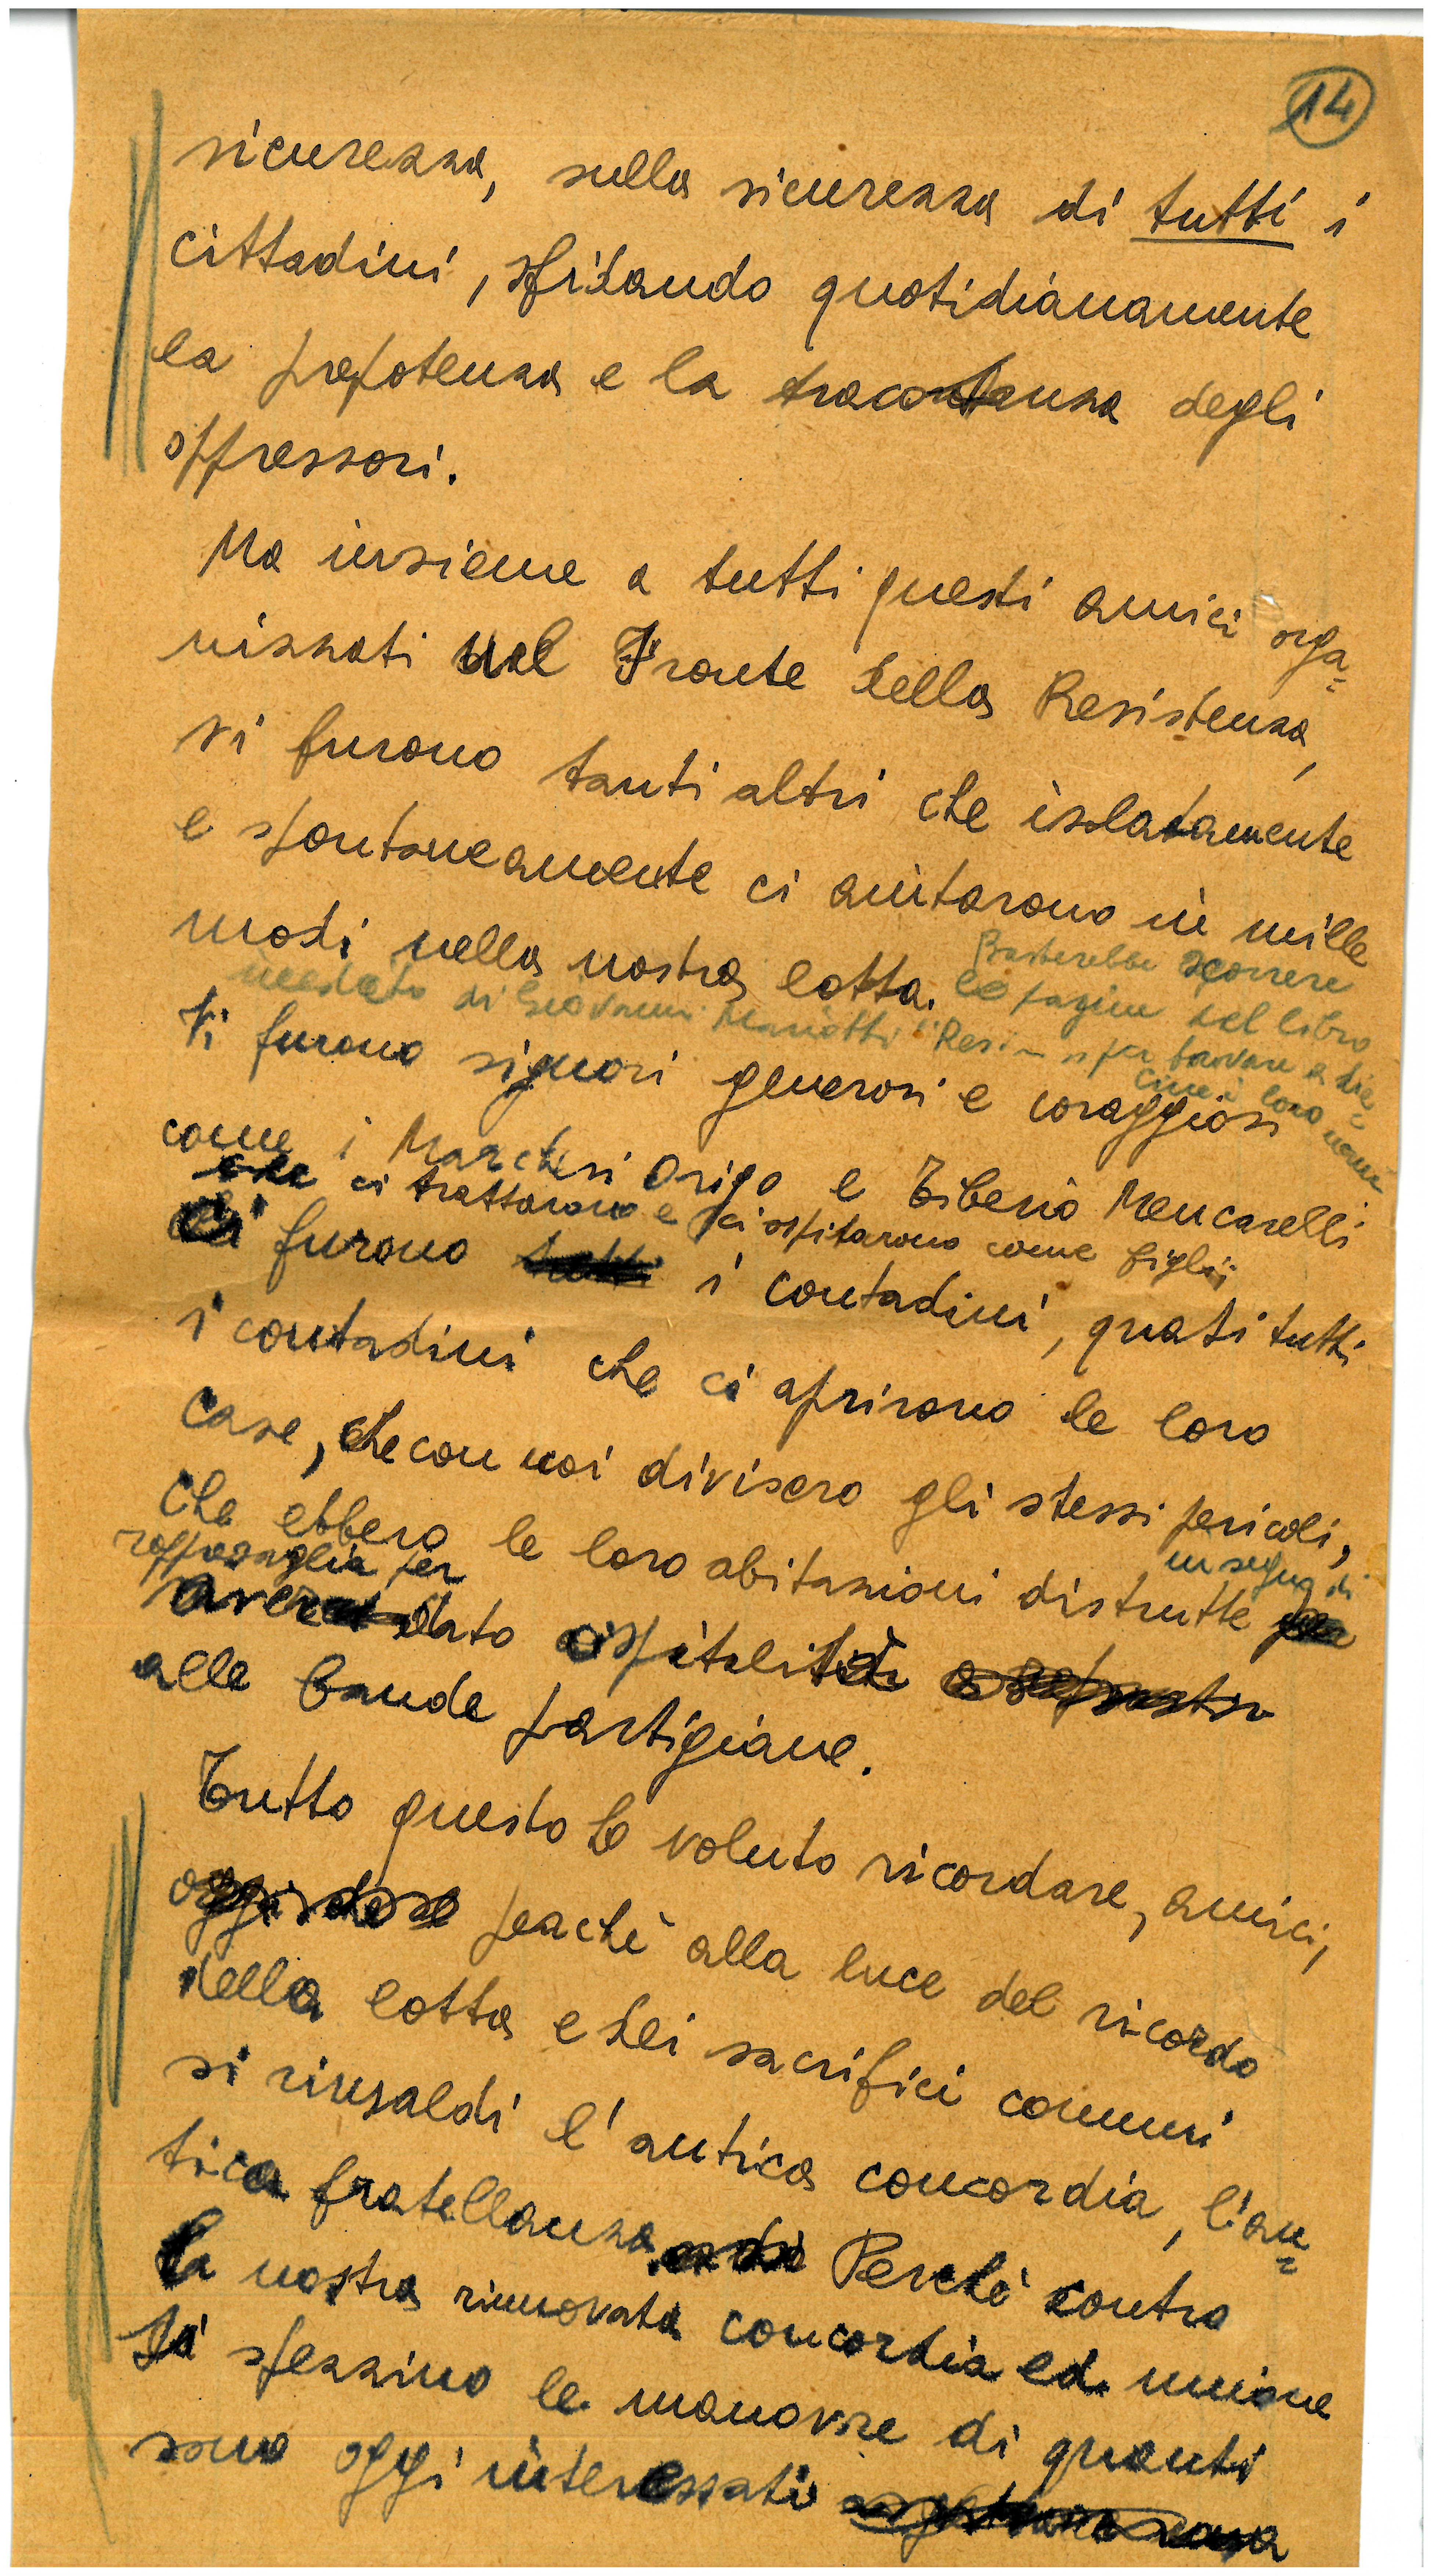 14
sicurezza, sulla sicurezza di tutti i
cittadini, sfidando quotidianamente
la prepotenza e la tracotanza degli
oppressori.
Ma insieme a tutti questi amici orga=
nizzati nel Fronte della Resistenza,
vi furono tanti altri che isolatamente
e spontaneamente ci aiutarono in mille
modi nella nostra lotta.
Basterebbe scorrere
le pagine del libro
inedito di Giovanni Mariotti "Resi—" per trovare a die=
cine i loro nomi
Vi furono signori generosi e coraggiosi
come i Marchesi Origo e Tiberio Mencarelli
che ci trattarono e ci ospitarono come figli;
Ci furono tutti i contadini, quasi tutti
i contadini che ci aprirono le loro
case, che con noi divisero gli stessi pericoli,
che ebbero le loro abitazioni distrutte per
in segno di
rappresaglia per
aver dato ospitalità
alle bande partigiane.
Tutto questo ho voluto ricordare, amici,
oggi perchè alla luce del ricordo
della lotta e dei sacrifici comuni
si rinsaldi l'antica concordia, l'an=
tica fratellanza. Perchè contro
la nostra rinnovata concordia ed unione
si spezzino le manovre di quanti
sono oggi interessati